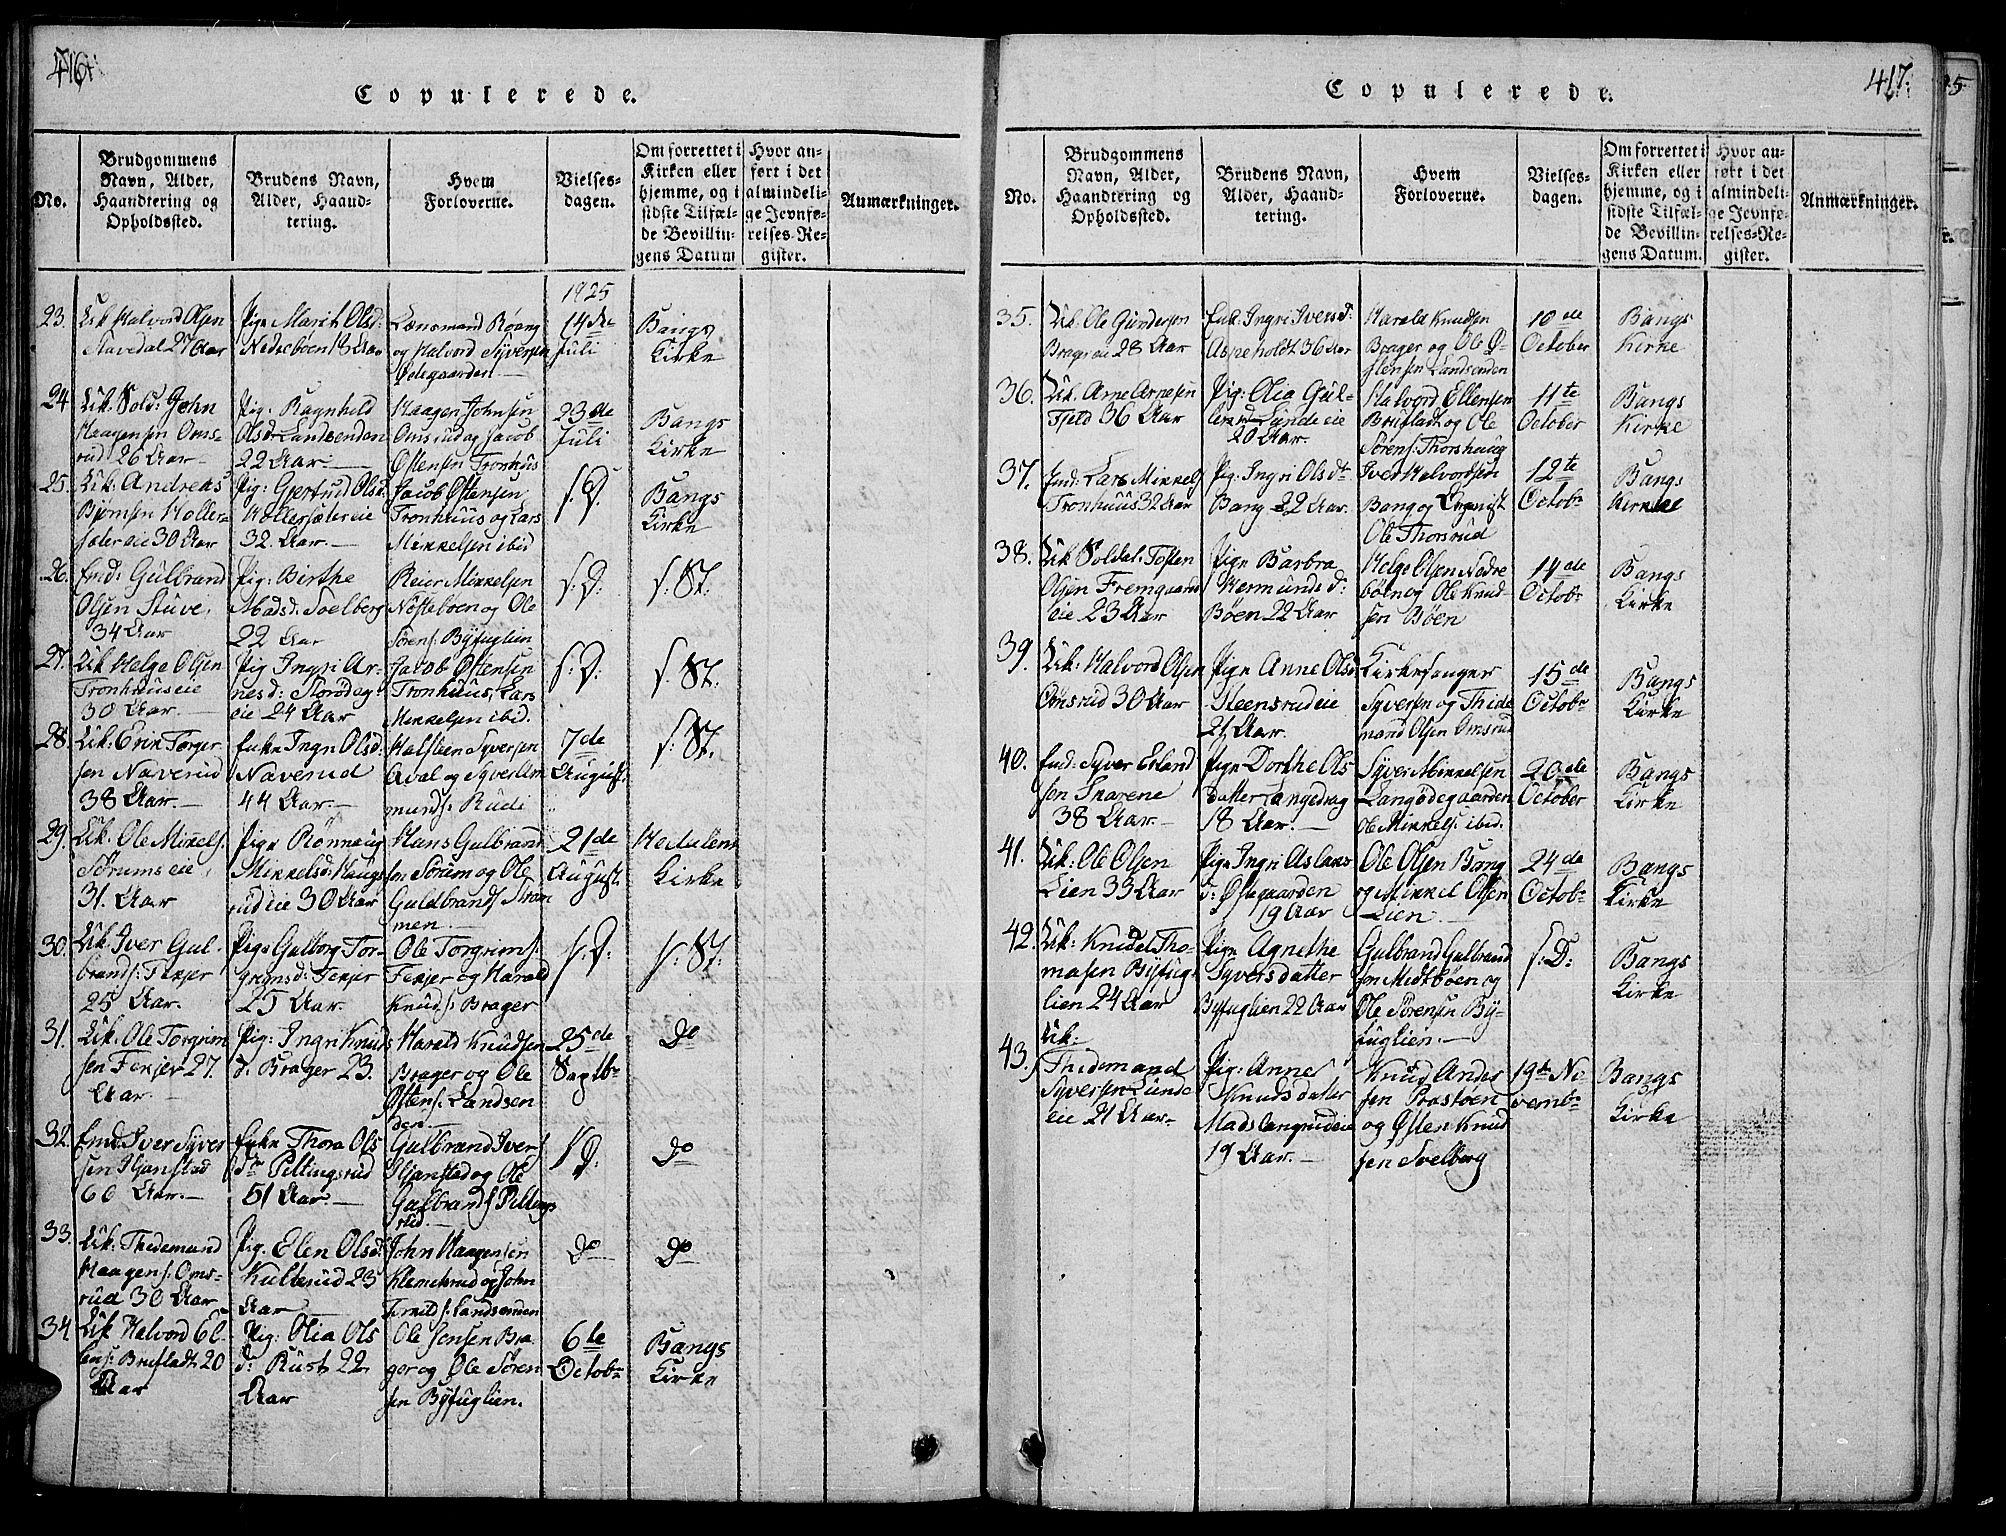 416.
Copulerede.
No.
Brudgommens
Navn, Alder,
Haandtering og
Opholdssted.
Brudens Navn,
Alder, Haand-
tering.
Hvem
Forloverne.
Vielses-
dagen.
Om forrettet i
Kirken eller
hjemme, og i
sidste Tilfæl-
de Bevillin-
gens Datum
Hvor an-
ført i det
almindeli-
ge Jevnfø-
relses-Re-
gister.
Anmærkninger.
1825
23. Halvord Olsen
27 Aar
Pige Marit Olsd:
18 Aar
Lænsmand
og Halvord Syversen
Ødegaarden
14de
Juli
Bangs
Kirke
24. Uk. Sold: John
Haagensen Oms-
rud 26 Aar
Pig: Ragnhild
Olsd: Landsenden
22 Aar
Haagen Johnsen
Omsrud og Jacob
Østensen Tronhus
23de
Juli
Bangs
Kirke
25. Uk: Andreas
30 Aar
Pig: Gjertrud Olsd.
32. Aar.
Jacob Østensen
Tronhuus og Lars
Mikkelsen ibid
s: D:
Bangs
Kirke
26. Emd: Gulbrand
Olsen Stuve,
34 Aar
Pig: Birthe
Madsd: Soelberg
22 Aar
Reier Mikkelsen
og Ole
Sørens: Byfuglien
s: D:
s: St:
27. Uk Helge Olsen
Tronhuuseie
30 Aar.
Pig Ingri Ar-
nesd:
eie 24 Aar
Jacob Østensen
Tronhuus, Lars
Mikkelsen ibid.
s: D:
s: St:
28. Uk: Erik Torger
sen Naverud
38 Aar.
Enke Ingri Olsd:
Naverud
44 Aar.
Halsteen Syversen
Aval og Syver Am
munds: Rudi
7de
August
s: St:
29. Uk. Ole Mikkels.
Sørums eie,
31. Aar
Pige Rønnaug
Mikkelsd: Haugs
rud eie 30 Aar
Hans Gulbrand
sen Sørum og Ole
Guldbrands Stram
men.
21de
August
Hedalens
Kirke
30. Uk. Iver Gul-
brands: Fekjer
25 Aar.
Pige Gulborg Tor-
grimsd: Fekjer
25 Aar.
Ole Torgrims:
Fekjer og Harald
Knuds: Brager
s: D:
s: St:
31. Uk. Ole Torgrim
sen Fekjer 27.
Aar.
Pig: Ingri Knuds
d. Brager 23.
Harald Knudsen
Brager og Ole
Østens: Landsen
den.
25de
Septbr
Do
32. Emd: Iver Syver
sen Hjanstad
60 Aar.
Enke Thora Ols
dr Piltingsrud
51 Aar.
Gulbrand Ivers
Hjanstad og Ole
Gulbrands Piltings
rud.
s D:
Do
33. Uk: Thidemand
Haagens: Oms-
rud 30 Aar
Pig. Elen Olsd.
Kulterud 23
Aar
John Haagensen
Klemetsrud og John
Landsenden
Do
Do
34. Uk Halvord El-
lens: Brufladt 20
Aar
Pig: Olia Ols
d: Rust 22
Aar
Ole Jensen Bra
ger og Ole Søren
sen Byfuglien.
6te
Octobr
Bangs
Kirke
417.
Copulerede.
No.
Brudgommens
Navn, Alder,
Haandtering og
Opholdssted.
Brudens Navn,
Alder, Haand-
tering.
Hvem
Forloverne.
Vielses-
dagen.
Om forrettet i
Kirken eller
hjemme, og i
sidste Tilfæl-
de Bevillin-
gens Datum.
Hvor an-
ført i det
almindeli-
ge Jevnfø-
relses-Re-
gister.
Anmærkninger.
35. Uk. Ole Gundersen
Brager eie 28 Aar
Enke Ingri Iversd:
Aspeholdt 36 Aar
Harald Knudsen
Brager og Ole Ø-
stensen Landsenden
10de
October
Bangs
Kirke
36. Uk. Arne Arnesen
Fjeld 36 Aar
Pig: Olia Gul-
Lunde eie
20 Aar.
Halvord Ellensen
Brufladt og Ole
Sørens: Thorshaug
11te
October
Bangs
Kirke
37. Emd: Lars Mikkels
Tronhuus 32 Aar
Pig: Ingri Olsdt
Bang 22 Aar.
Iver Halvordsen
Bang og
Ole Thorsrud
12te
Octobr
Bangs
Kirke
38. Uk Soldat: Tosten
Olsen Fremgaard
eie 23 Aar
Pige Barbra
Hermunds d:
Bøen 22 Aar
Helge Olsen Nedre
bøen og Ole Knud
sen Bøen
14de
Octobr
Bangs
Kirke
39. Uk: Halvord Olsen
Omsrud 30 Aar
Pige Anne Olsd:
Steensrud eie
21 Aar.
Kirkesanger
Syversen og Thide
mand Olsen Omsrud
15de
Octobr
Bangs
Kirke
40. Emd: Syver Erland
sen Skarene
38 Aar
Pige Dorthe Ols
datter Langedrag
18 Aar.
Syver Mikkelsen
Langødegaarden
Ole Mikkels: ibid.
20de
October
Bangs
Kirke
41. Uk: Ole Olsen
Lien 33 Aar
Pige Ingri Aslaks
d: Øftegaarden
19 Aar
Ole Olsen Bang
og Mikkel Olsen
Lien
24de
Octobr
Bangs
Kirke
42. Uk: Knudel Tho-
masen Byfug-
lien 24 Aar
Pige Agnethe
Syversdatter
Byfuglien 22 Aar
Gulbrand Gulbrand
sen Midtbøen og
Ole Sørensen By-
fuglien.
s: D:
Bangs
Kirke
43. Uk:
Thidemand
Syversen Lunde
eie 21 Aar.
Pig: Anne
Knudsdatter
Madslangrud eie
19 Aar.
Knud Anders
sen Præstøen
og Østen Knud
sen Soelberg
19de No
vembr
Bangs
Kirke